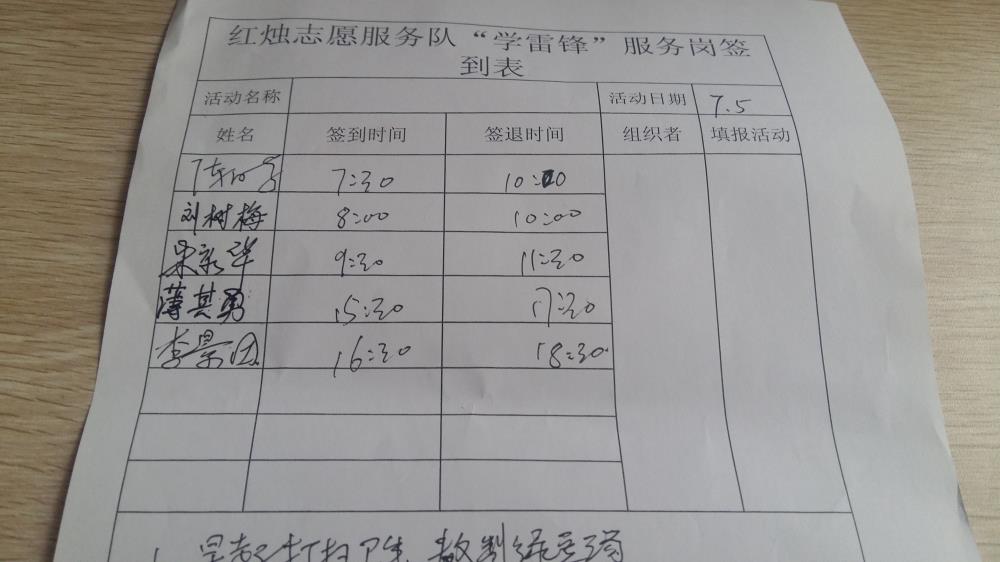 红烛志愿服务队“学雷锋”服务岗签
到表
活动名称 活动日期 7.5
姓名 签到时间 签退时间 组织者 填报活动
7:30 10:00
刘树梅 8:00 10:00
9:30 11:30
薄其勇 15:30 17:30
李景 16:30 18:30
1. 打扫卫生